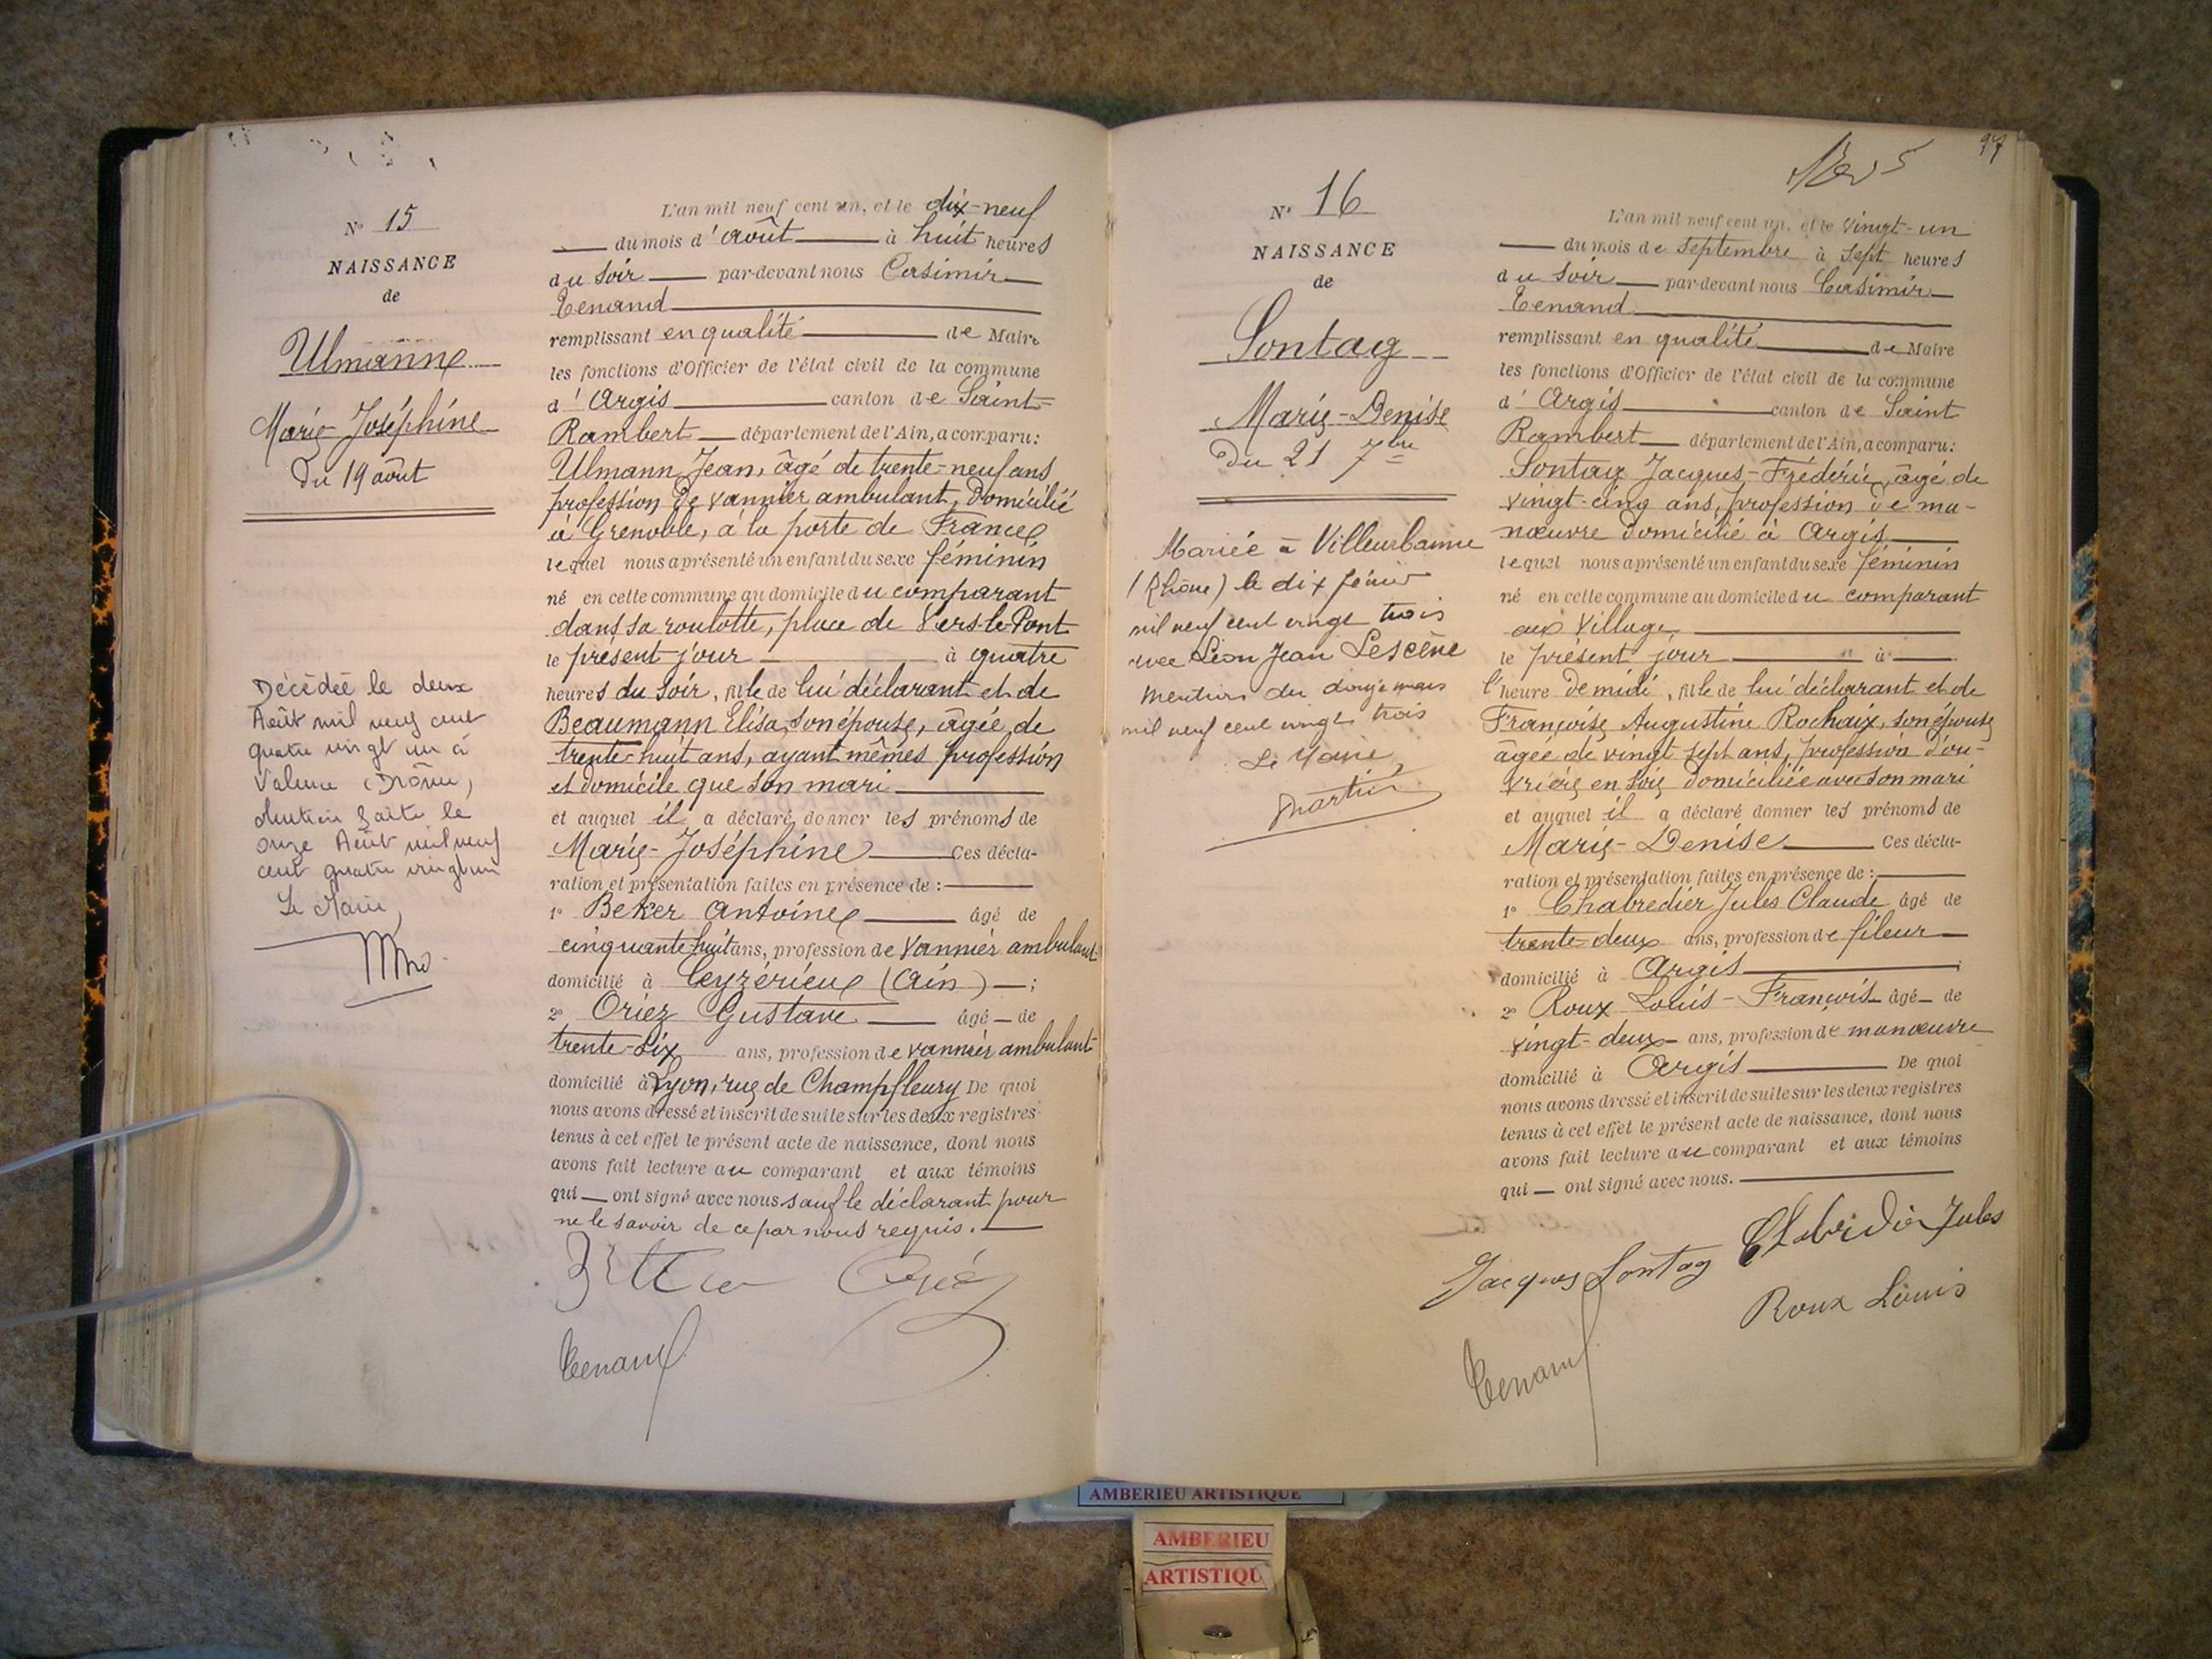 N° 15
NAISSANCE
de
Ulmanne
Marie-Joséphine
Du 19 août
Décédée le deux
Août mil neuf cent
quatre vingt un à
Valence (Drôme)
mention faite le
onze Août mil neuf
cent quatre vingt un
Le Maire,
L'an mil neuf cent un, et le dix-neuf
du mois d'août à huit heures
du soir par-devant nous Casimir
Tenand
remplissant en qualité de Maire
les fonctions d'Officier de l'état civil de la commune
d'Argis canton de Saint-
Rambert département de l'Ain, a comparu:
Ulmann Jean, âgé de trente-neuf ans
profession de vannier ambulant, domicilié
à Grenoble, à la porte de France
lequel nous a présenté un enfant du sexe féminin
né en cette commune au domicile du comparant
dans sa roulotte, place de Vers-le-Pont
le présent jour à quatre
heures du soir, fille de lui déclarant et de
Beaumann Elisa, son épouse, âgée de
trente-huit ans, ayant mêmes profession
et domicile que son mari
et auquel il a déclaré donner les prénoms de
Marie-Joséphine Ces décla-
ration et présentation faites en présence de :
1° Beker Antoine âgé de
cinquante-huit ans, profession de vannier ambulant
domicilié à Ceyzérieux (Ain) ;
2° Oriez Gustave âgé de
trente-six ans, profession de vannier ambulant
domicilié à Lyon, rue de Champfleury De quoi
nous avons dressé et inscrit de suite sur les deux registres
tenus à cet effet le présent acte de naissance, dont nous
avons fait lecture au comparant et aux témoins
qui ont signé avec nous sauf le déclarant pour
ne le savoir de ce par nous requis.
Tenand
97
N° 16
NAISSANCE
de
Sontag
Marie-Denise
Du 21 7bre
Mariée à Villeurbanne
(Rhône) le dix février
mil neuf cent vingt trois
avec Léon Jean Lescène
Mention du douze mars
mil neuf cent vingt trois
Le Maire,
Martin
L'an mil neuf cent un, et le vingt-un
du mois de Septembre à sept heures
du soir par-devant nous Casimir
Tenand
remplissant en qualité de Maire
les fonctions d'Officier de l'état civil de la commune
d'Argis canton de Saint
Rambert département de l'Ain, a comparu:
Sontag Jacques-Frédéric, âgé de
vingt-cinq ans, profession de ma-
nœuvre domicilié à Argis
lequel nous a présenté un enfant du sexe féminin
né en cette commune au domicile du comparant
au Village,
le présent jour à
l'heure de midi, fille de lui déclarant et de
Françoise Augustine Rochaix, son épouse
âgée de vingt sept ans, profession d'ou-
vrière en soie domiciliée avec son mari
et auquel il a déclaré donner les prénoms de
Marie-Denise Ces décla-
ration et présentation faites en présence de :
1° Chabredier Jules Claude âgé de
trente-deux ans, profession de fileur
domicilié à Argis
2° Roux Louis-François âgé de
vingt-deux ans, profession de manœuvre
domicilié à Argis De quoi
nous avons dressé et inscrit de suite sur les deux registres
tenus à cet effet le présent acte de naissance, dont nous
avons fait lecture au comparant et aux témoins
qui ont signé avec nous.
Jacques Sontag Chabredier Jules
Roux Louis
Tenand
AMBERIEU ARTISTIQUE
AMBERIEU
ARTISTIQU